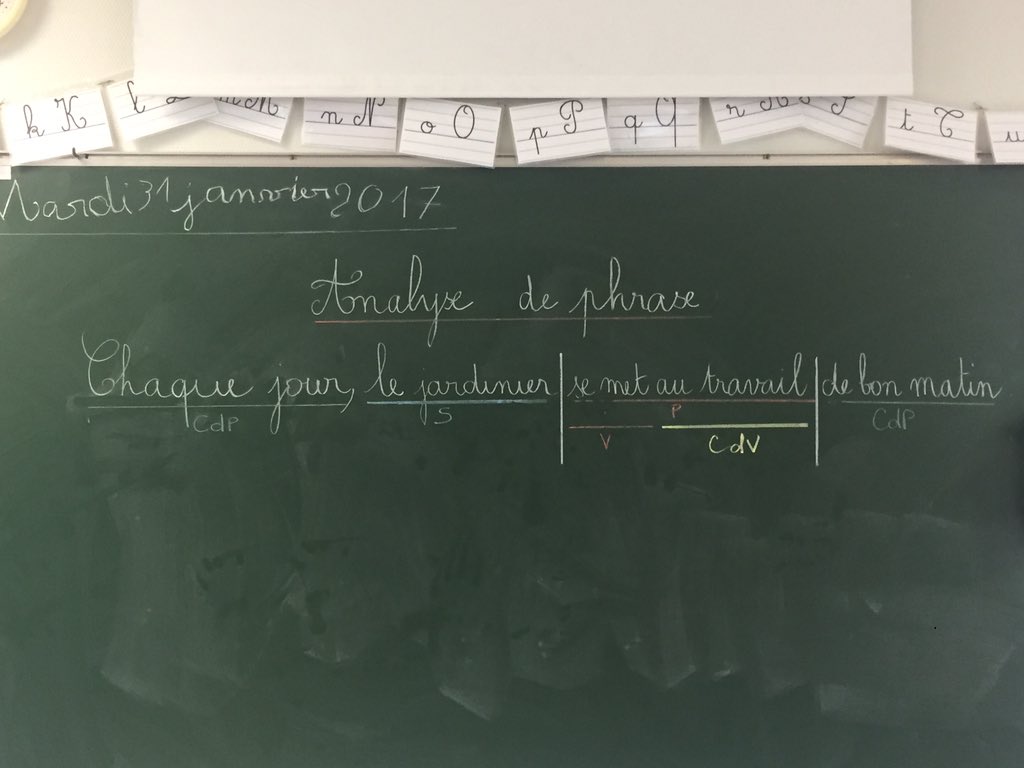 k K l m M n N o O p P q Q r t T u
Mardi 31 janvier 2017
Analyse de phrase
Chaque jour, le jardinier se met au travail de bon matin
CdP S P CdP
V CdV